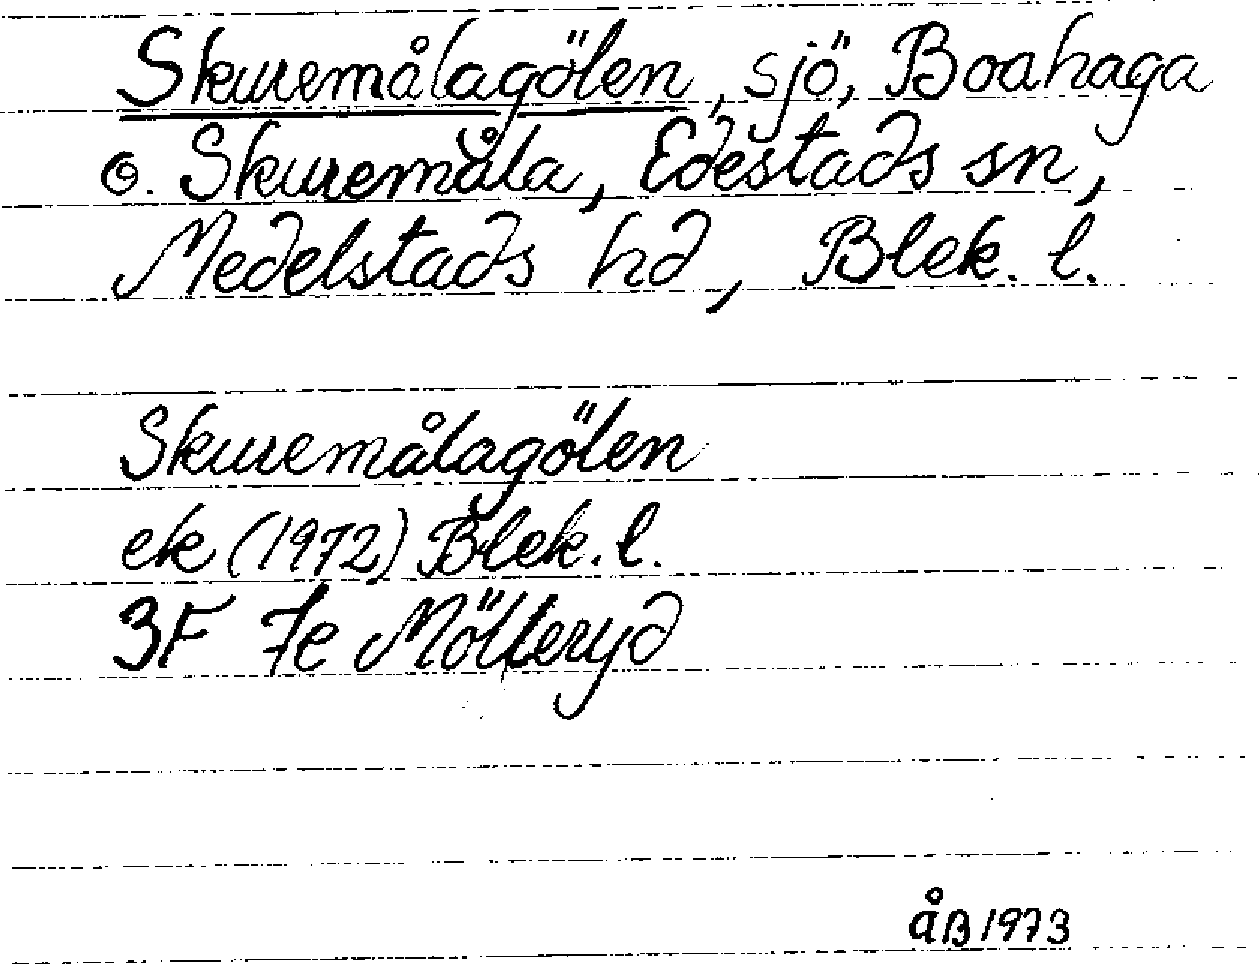 Skuremålagölen, sjö, Boahaga
o. Skuremåla, Edestads sn,
Medelstads hd, Blek. l.
Skuremålagölen
ek (1972) Blek. l.
3F 7e Mölleryd
åB 1973